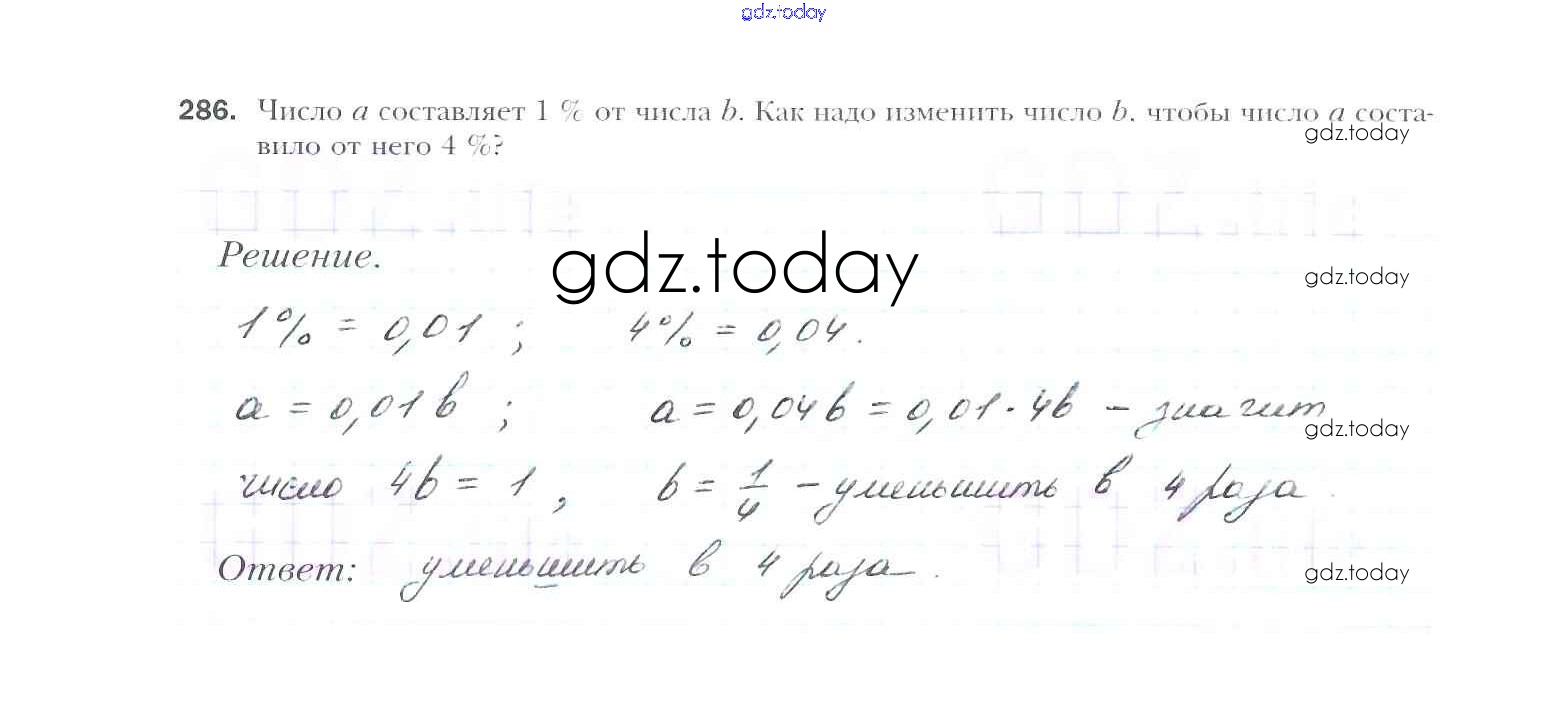 gdz.today
286. Число a составляет 1 % от числа b. Как надо изменить число b, чтобы число a соста-
gdz.today
вило от него 4 %?
Решение.
gdz.today
gdz.today
1% = 0,01 ; 4% = 0,04.
a = 0,01b ; a = 0,04b = 0,01·4b – значит
gdz.today
число 4b = 1 , b = 1/4 – уменьшить в 4 раза.
Ответ: уменьшить в 4 раза.
gdz.today